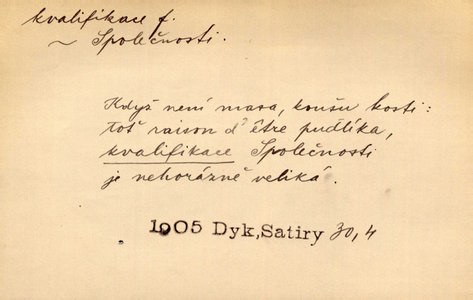 kvalifikace f.
~ Společnosti.
Když není masa, koušu kosti:
toť raison d'être pudlíka,
kvalifikace Společnosti
je nehorázně veliká.
1905 Dyk, Satiry 30,4